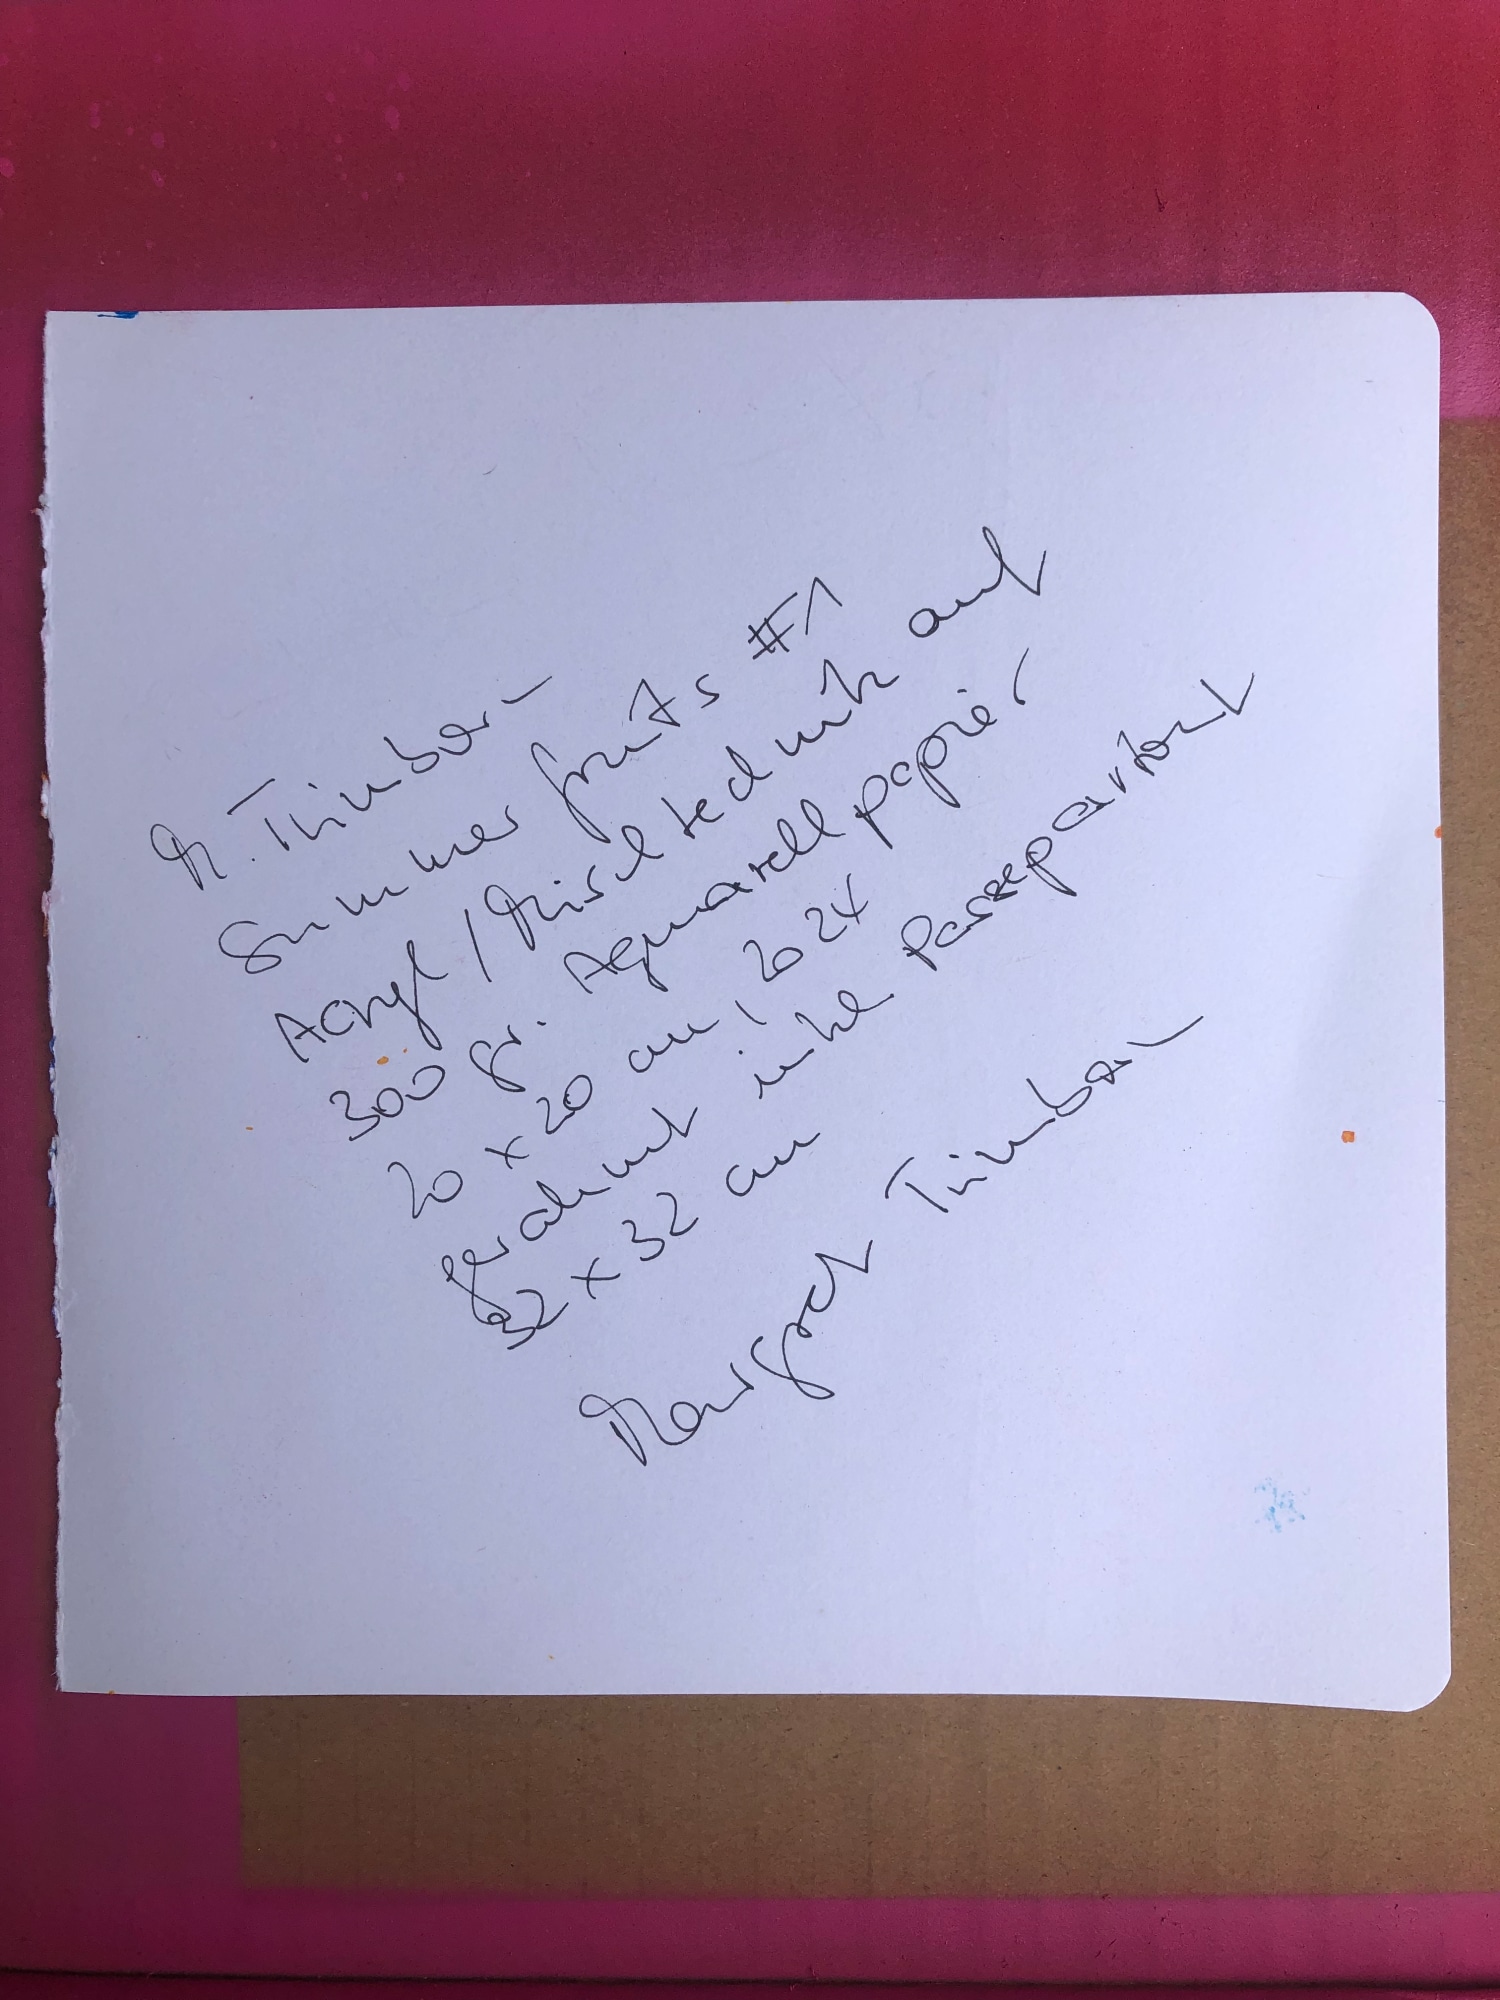 M. Thimborn
Summer fruits #1
Acryl / Mischtechnik auf
300 gr. Aquarellpapier
20 x 20 cm, 2024
gerahmt inkl Passepartout
32 x 32 cm
Margret